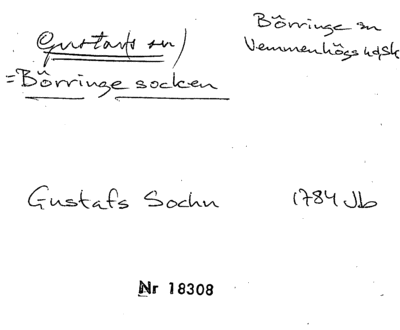 Gustafs sn)
Börringe sn
Vemmenhögs hdsk
=Börringe socken
Gustafs Sochn 1784 Jb
Nr 18308